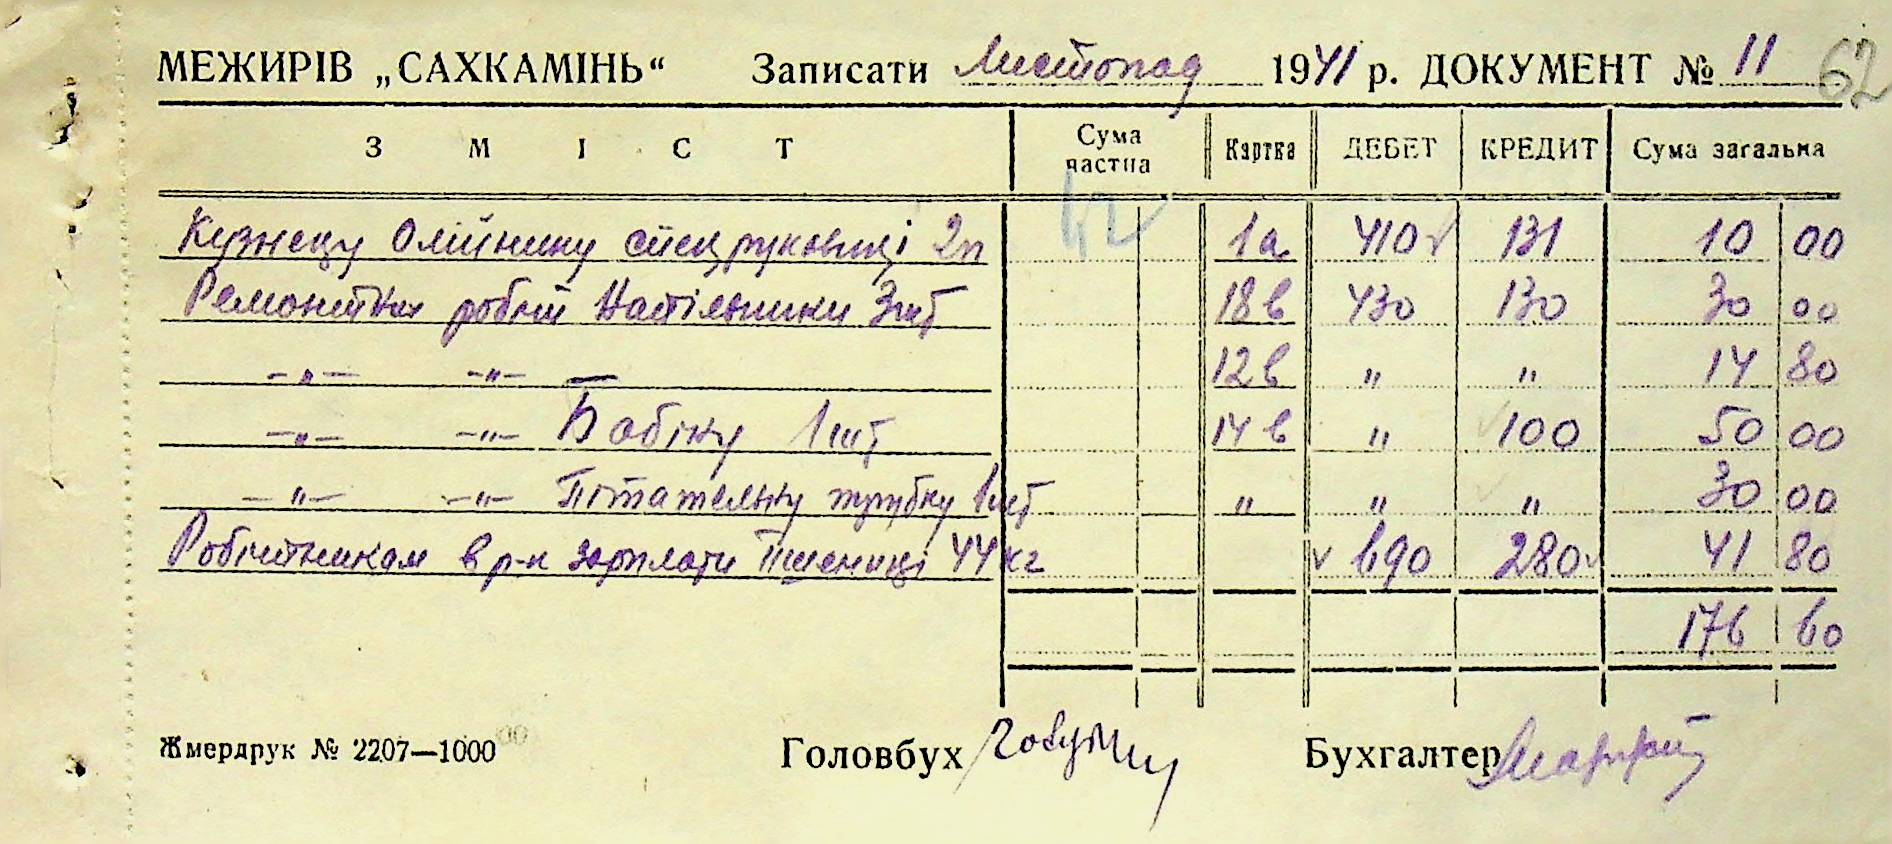 МЕЖИРІВ „САХКАМІНЬ“ Записати Листопад 1941 р. ДОКУМЕНТ № 11 62
ЗМІСТ Сума частна Картка ДЕБЕТ КРЕДИТ Сума загальна
Кузнецу Олійнику спецруковиці 2п 1а 410 131 10 00
Ремонтних робіт Напільники 3шт 18в 430 130 30 00
-„- -„- 12в „ „ 14 80
-„- -„- Бабіку 1шт 14в „ 100 50 00
-„- -„- Пітательну трубку 1шт „ „ „ 30 00
Робітникам в р-к зарплати Пшениці 44 кг 690 280 41 80
176 60
Жмердрук № 2207—1000 Головбух Бухгалтер